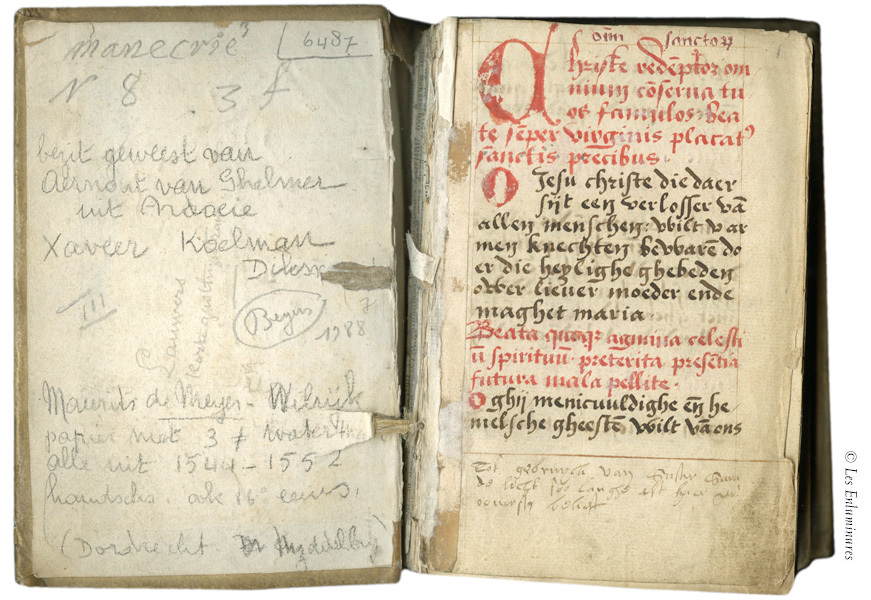 manecrie 3 6487
N 8 3 f
bezit geweest van
Aernout van Ghelmer
uit Ardooie
Xaveer Koelman
III
Lauwers
Beyus 7
1988
Maurits de Meyer - Wilrijk
papier met 3 watermer
alle uit 1544 - 1552
handschr. ok 16e eeuw.
(Dordrecht Middelb)
o͞m sanctorꝝ
Christe redemptor om
nium cōserua tu
os famulos: bea
te sēper virginis placatꝰ
sanctis precibus.
O Jesu christe die daer
sijt een verlosser vā
allen menschen: wilt v ar
men knechten bewarē do
er die heylighe ghebeden
ower liever moeder ende
maghet maria.
Beata quoqꝫ agmina celesti
ū spirituū preterita presentia
futura mala pellite.
O ghij menicuuldighe eñ he
melsche gheestē wilt vā ons
Tot gebruyck van suster
© Les Enluminures